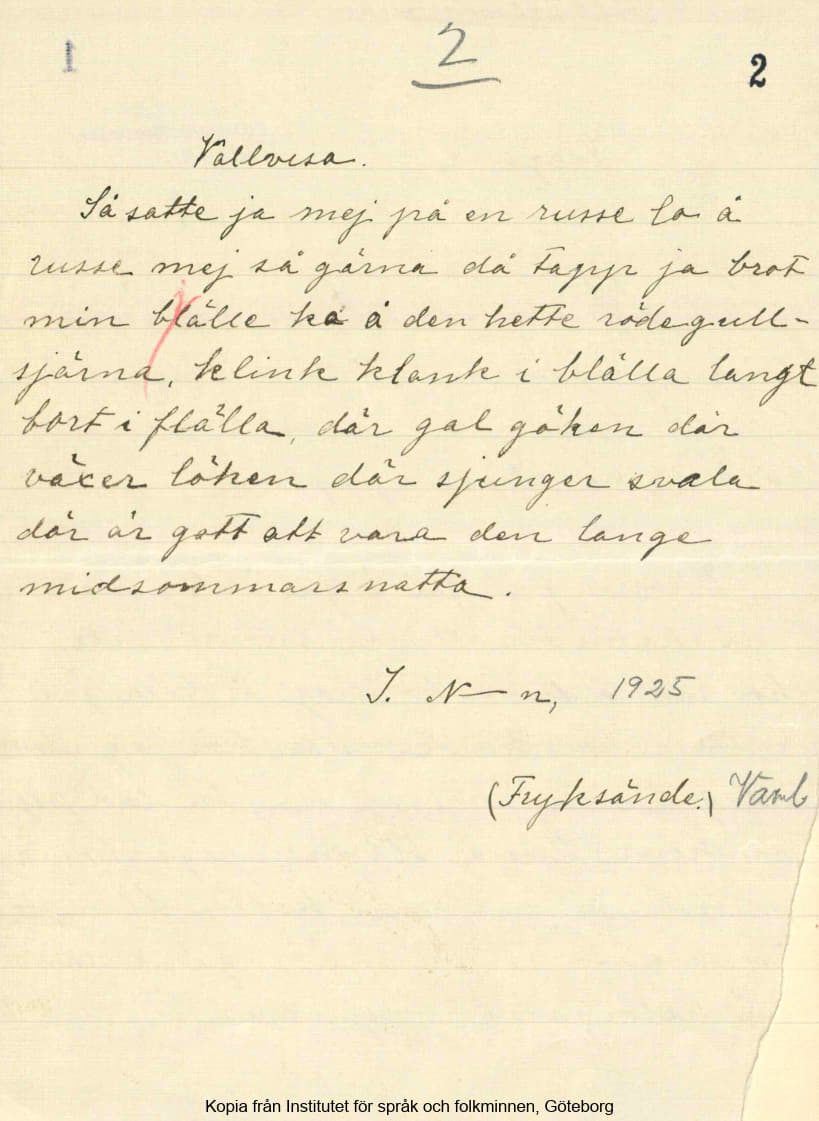 1
2
2
Vallvisa.
Så satte ja mej på en russe la å
russe mej så gärna då tapp ja brot
min blälle ko å den hette rödegull-
sjärna, klink klank i blälla langt
bort i flälla, där gal göken där
växer löken där sjunger svala
där är gott att vara den lange
midsommarsnatta.
J. N—n, 1925
(Fryksände.) Värml
Kopia från Institutet för språk och folkminnen, Göteborg